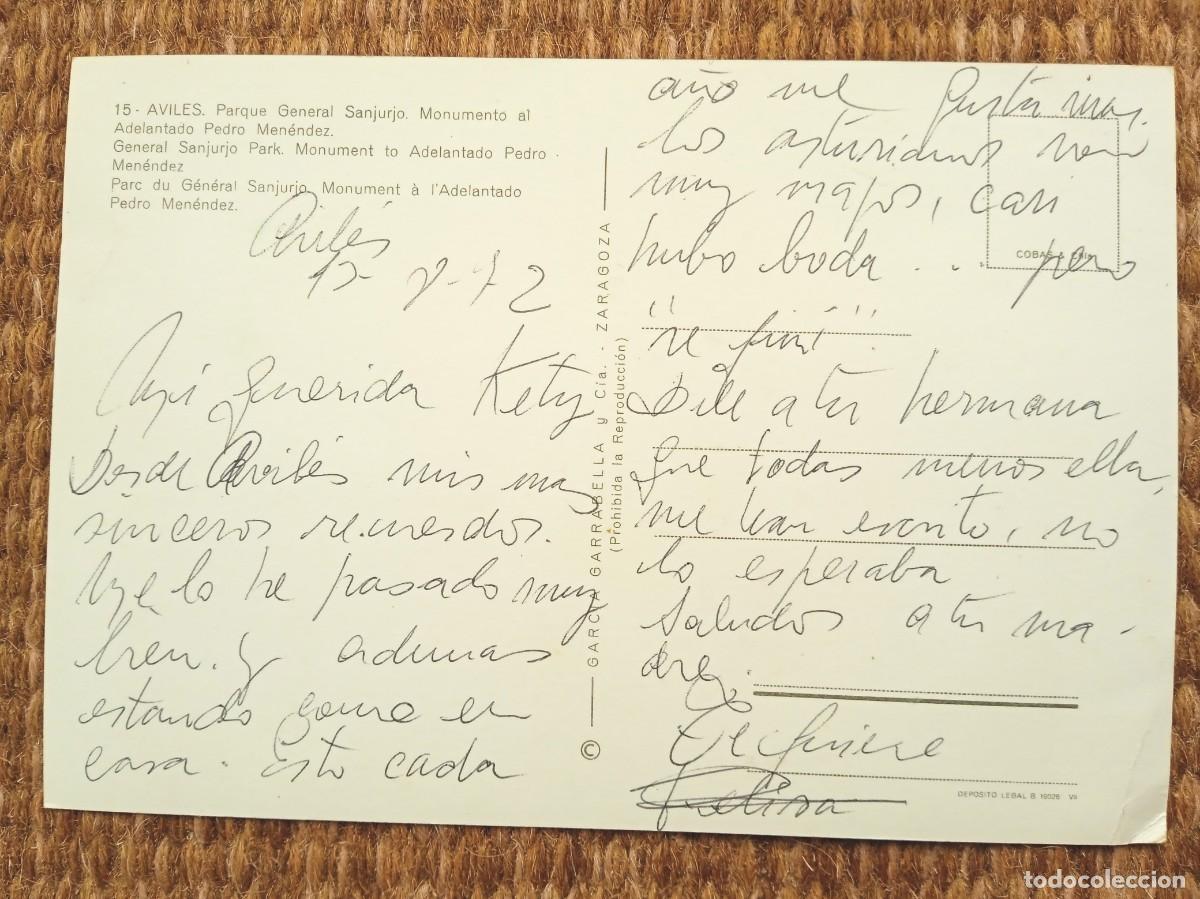 15 - AVILES. Parque General Sanjurjo. Monumento al
Adelantado Pedro Menéndez.
General Sanjurjo Park. Monument to Adelantado Pedro
Menéndez
Parc du Général Sanjurjo. Monument à l'Adelantado
Pedro Menéndez.
Avilés
-72
querida Kety
Desde Avilés mis mas
sinceros recuerdos.
lo he pasado muy
bien. y ademas
estando como en
casa. Esto cada
© GARCIA GARRABELLA y Cía. - ZARAGOZA
(Prohibida la Reproducción)
año me gusta mas.
los asturianos son
muy majos, casi
hubo boda... pero
COBAS
Dile a tu hermana
que todas menos ella,
me han escrito, no
lo esperaba
Saludos a tu ma-
dre.
Te quiere
Felisa
DEPOSITO LEGAL B. 19026 VII
todocoleccion